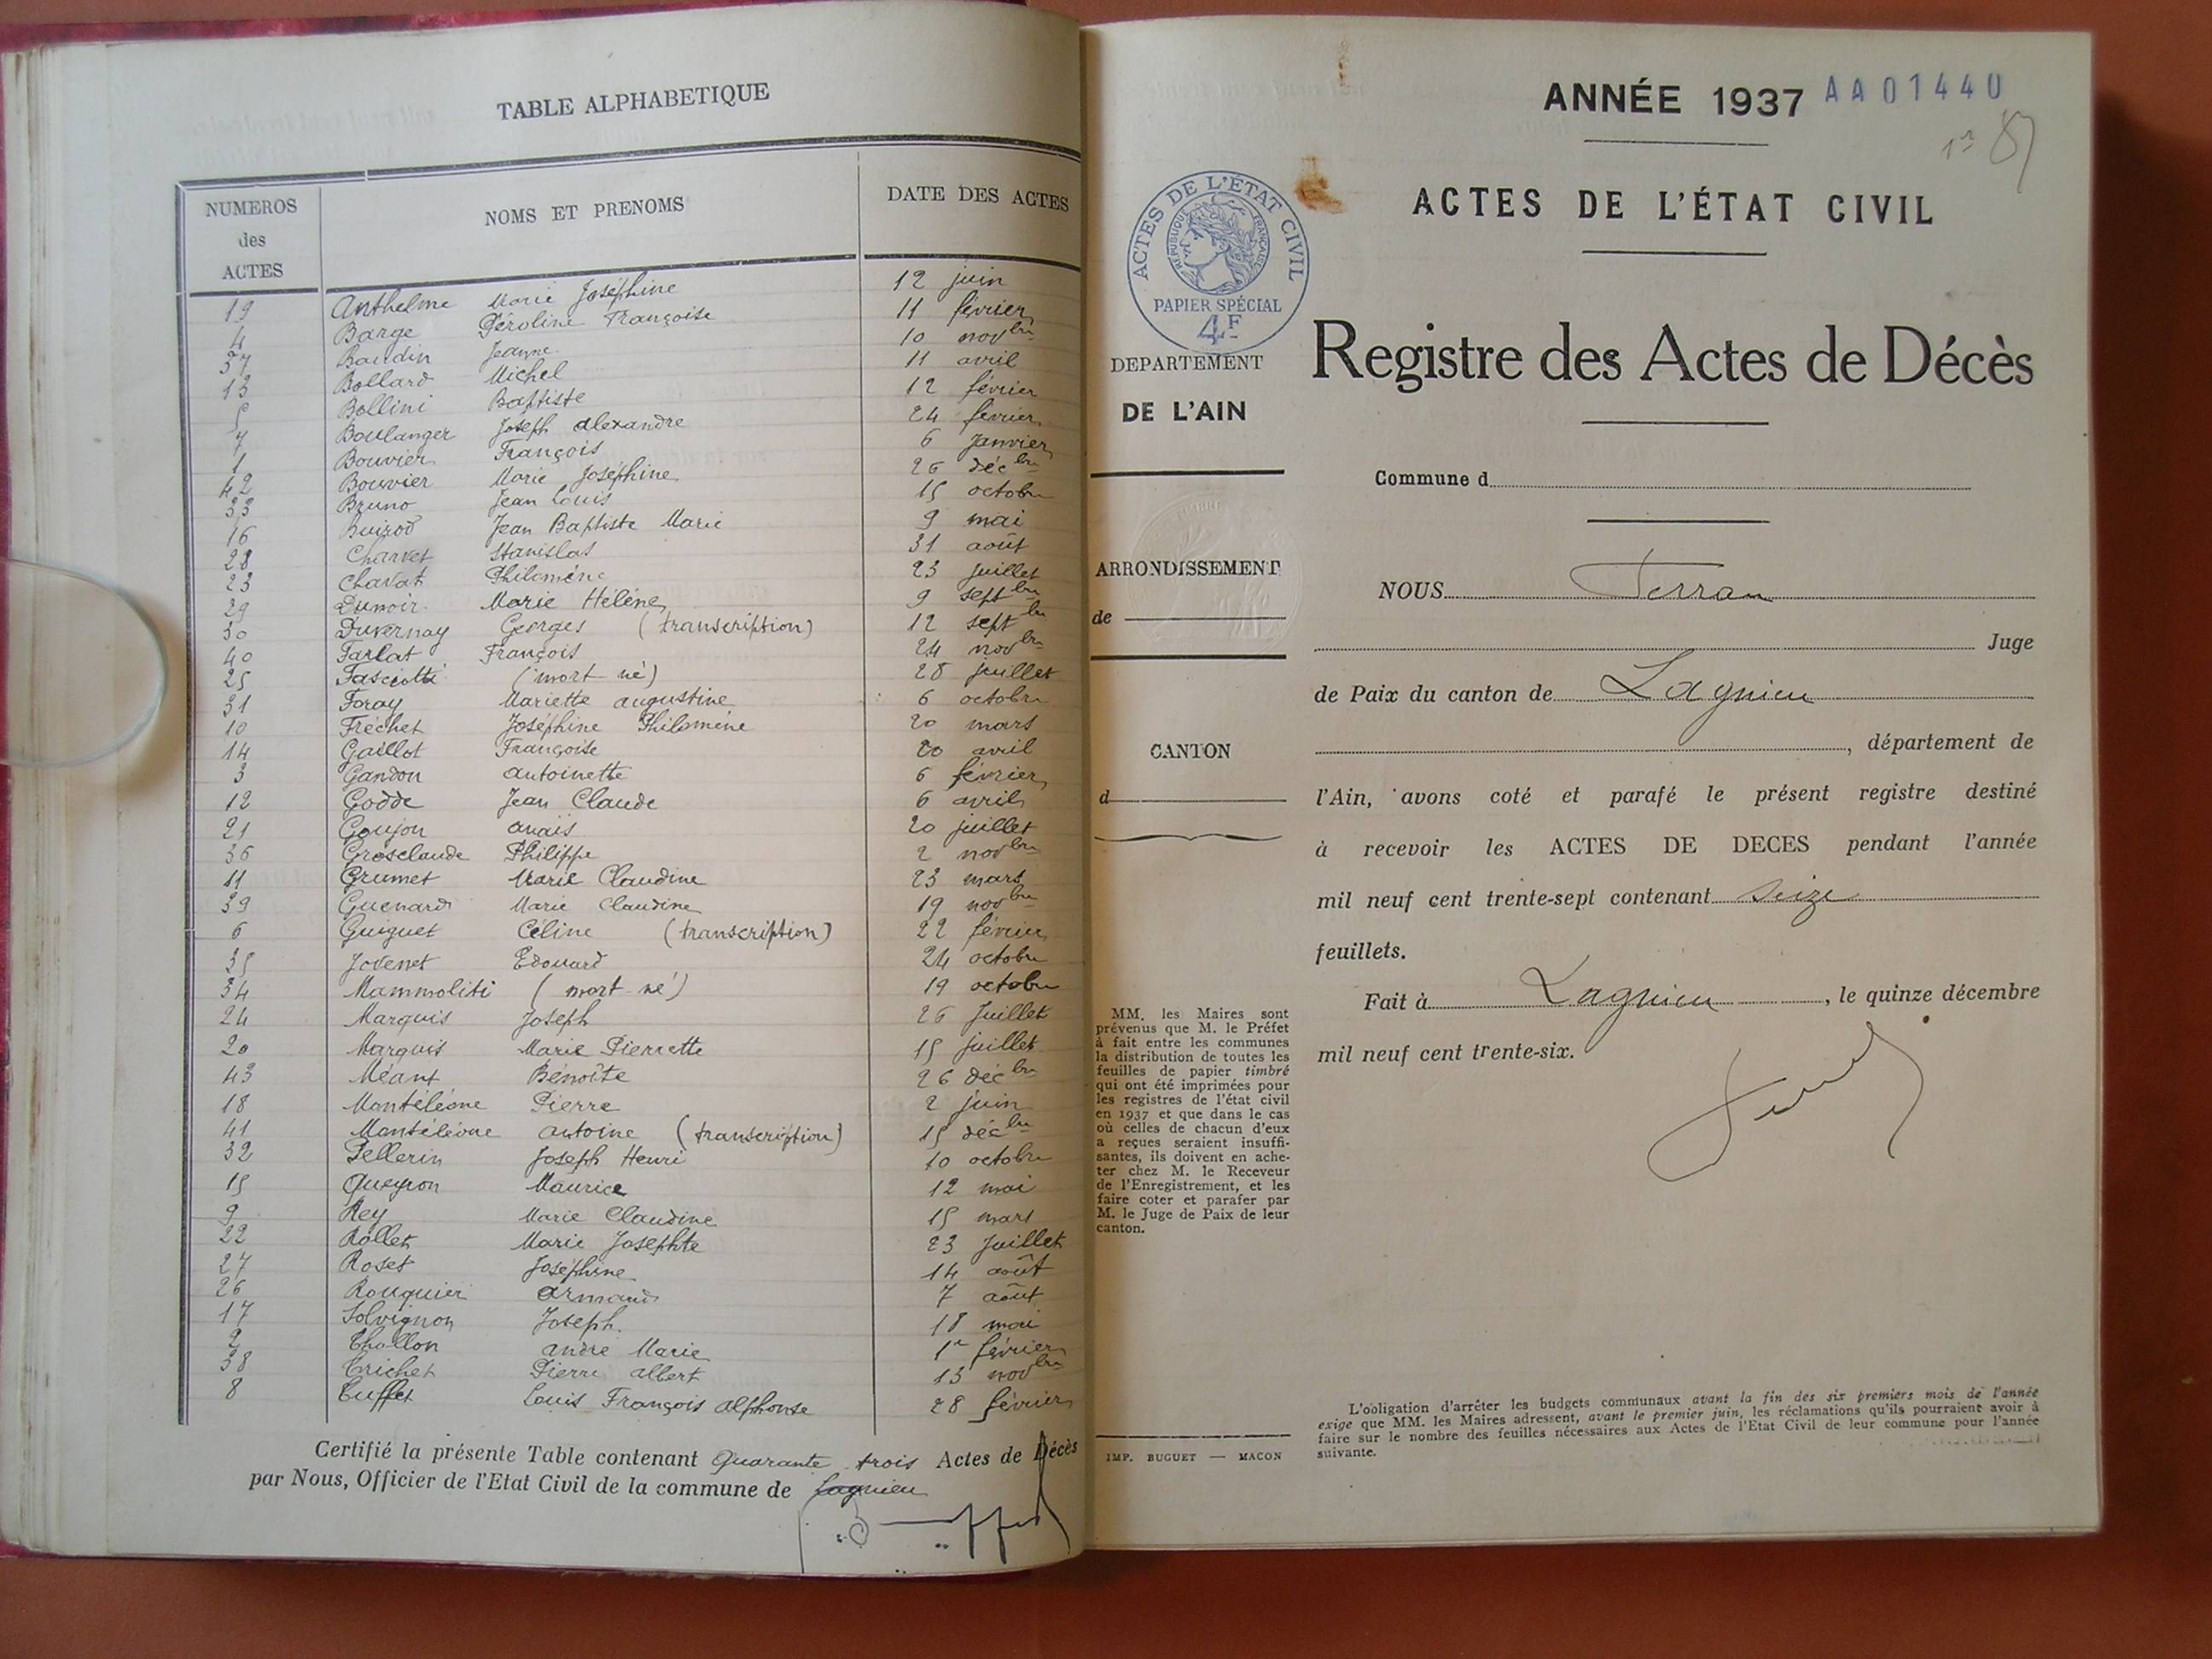 TABLE ALPHABETIQUE
NUMEROS des ACTES NOMS ET PRENOMS DATE DES ACTES
19 Anthelme Marie Joséphine 12 juin
4 Barge Péroline Françoise 11 février
37 Baudin Jeanne 10 novbre
13 Bollard Michel 11 avril
5 Bollini Baptiste 12 février
7 Boulanger Joseph Alexandre 24 février
1 Bouvier François 6 janvier
42 Bouvier Marie Joséphine 26 décbre
33 Bruno Jean Louis 15 octobre
16 Buirod Jean Baptiste Marie 9 mai
28 Charvet Stanislas 31 août
23 Chavat Philomène 23 juillet
29 Dunoir Marie Hélène 9 septbre
30 Duvernay Georges (transcription) 12 septbre
40 Farlat François 24 novbre
25 Fasciotti (mort-né) 28 juillet
31 Foray Mariette Augustine 6 octobre
10 Fréchet Joséphine Philomène 20 mars
14 Gaillot Françoise 20 avril
3 Gandon Antoinette 6 février
12 Godde Jean Claude 6 avril
21 Goujon Anaïs 20 juillet
36 Grosclaude Philippe 2 novbre
11 Grumet Marie Claudine 23 mars
39 Guenard Marie Claudine 19 novbre
6 Guiguet Céline (transcription) 22 février
35 Jovenet Edouard 24 octobre
34 Mammoliti (mort-né) 19 octobre
24 Marquis Joseph 26 Juillet
20 Marquis Marie Pierrette 15 juillet
43 Méant Bénoîte 26 décbre
18 Montéléone Pierre 2 juin
41 Montéléone Antoine (transcription) 15 décbre
32 Pellerin Joseph Henri 10 octobre
15 Queyron Maurice 12 mai
9 Rey Marie Claudine 15 mars
22 Rollet Marie Josephte 23 Juillet
27 Roset Joséphine 14 août
26 Rouquier Armand 7 août
17 Solvignon Joseph 18 mai
2 Thollon André Marie 1er février
38 Trichet Pierre Albert 13 novbre
8 Tuffet Louis François Alphonse 28 février
Certifié la présente Table contenant Quarante trois Actes de Décès
par Nous, Officier de l'Etat Civil de la commune de Lagnieu
ANNÉE 1937 AA01440
1er 87
ACTES DE L'ÉTAT CIVIL
ACTES DE L'ÉTAT CIVIL
RÉPUBLIQUE FRANÇAISE
PAPIER SPÉCIAL
4F
Registre des Actes de Décès
DEPARTEMENT
DE L'AIN
Commune d
ARRONDISSEMENT
de
CANTON
d
NOUS Ferran
Juge
de Paix du canton de Lagnieu
, département de
l'Ain, avons coté et parafé le présent registre destiné
à recevoir les ACTES DE DECES pendant l'année
mil neuf cent trente-sept contenant seize
feuillets.
Fait à Lagnieu, le quinze décembre
mil neuf cent trente-six.
MM. les Maires sont
prévenus que M. le Préfet
à fait entre les communes
la distribution de toutes les
feuilles de papier timbré
qui ont été imprimées pour
les registres de l'état civil
en 1937 et que dans le cas
où celles de chacun d'eux
a reçues seraient insuffi-
santes, ils doivent en ache-
ter chez M. le Receveur
de l'Enregistrement, et les
faire coter et parafer par
M. le Juge de Paix de leur
canton.
IMP. BUGUET — MACON
L'obligation d'arrêter les budgets communaux avant la fin des six premiers mois de l'année
exige que MM. les Maires adressent, avant le premier juin, les réclamations qu'ils pourraient avoir à
faire sur le nombre des feuilles nécessaires aux Actes de l'Etat Civil de leur commune pour l'année
suivante.